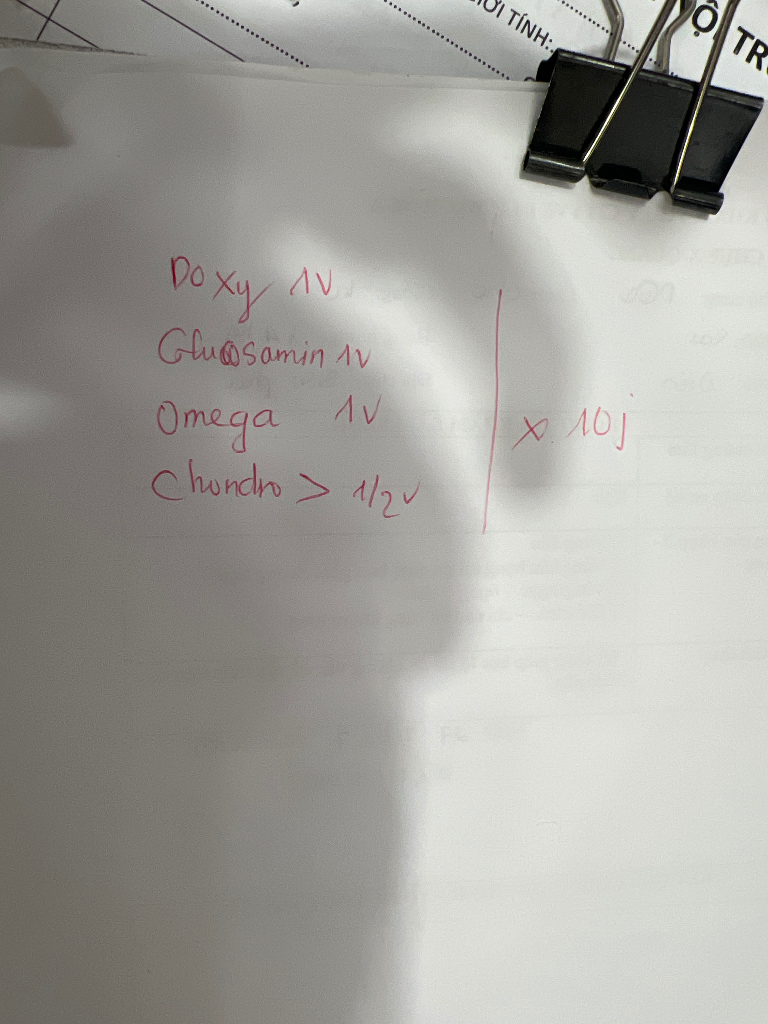 GIỚI TÍNH:
Ộ TR
Doxy 1v
Glucosamin 1v
Omega 1v
Chondro > 1/2v
x 10j